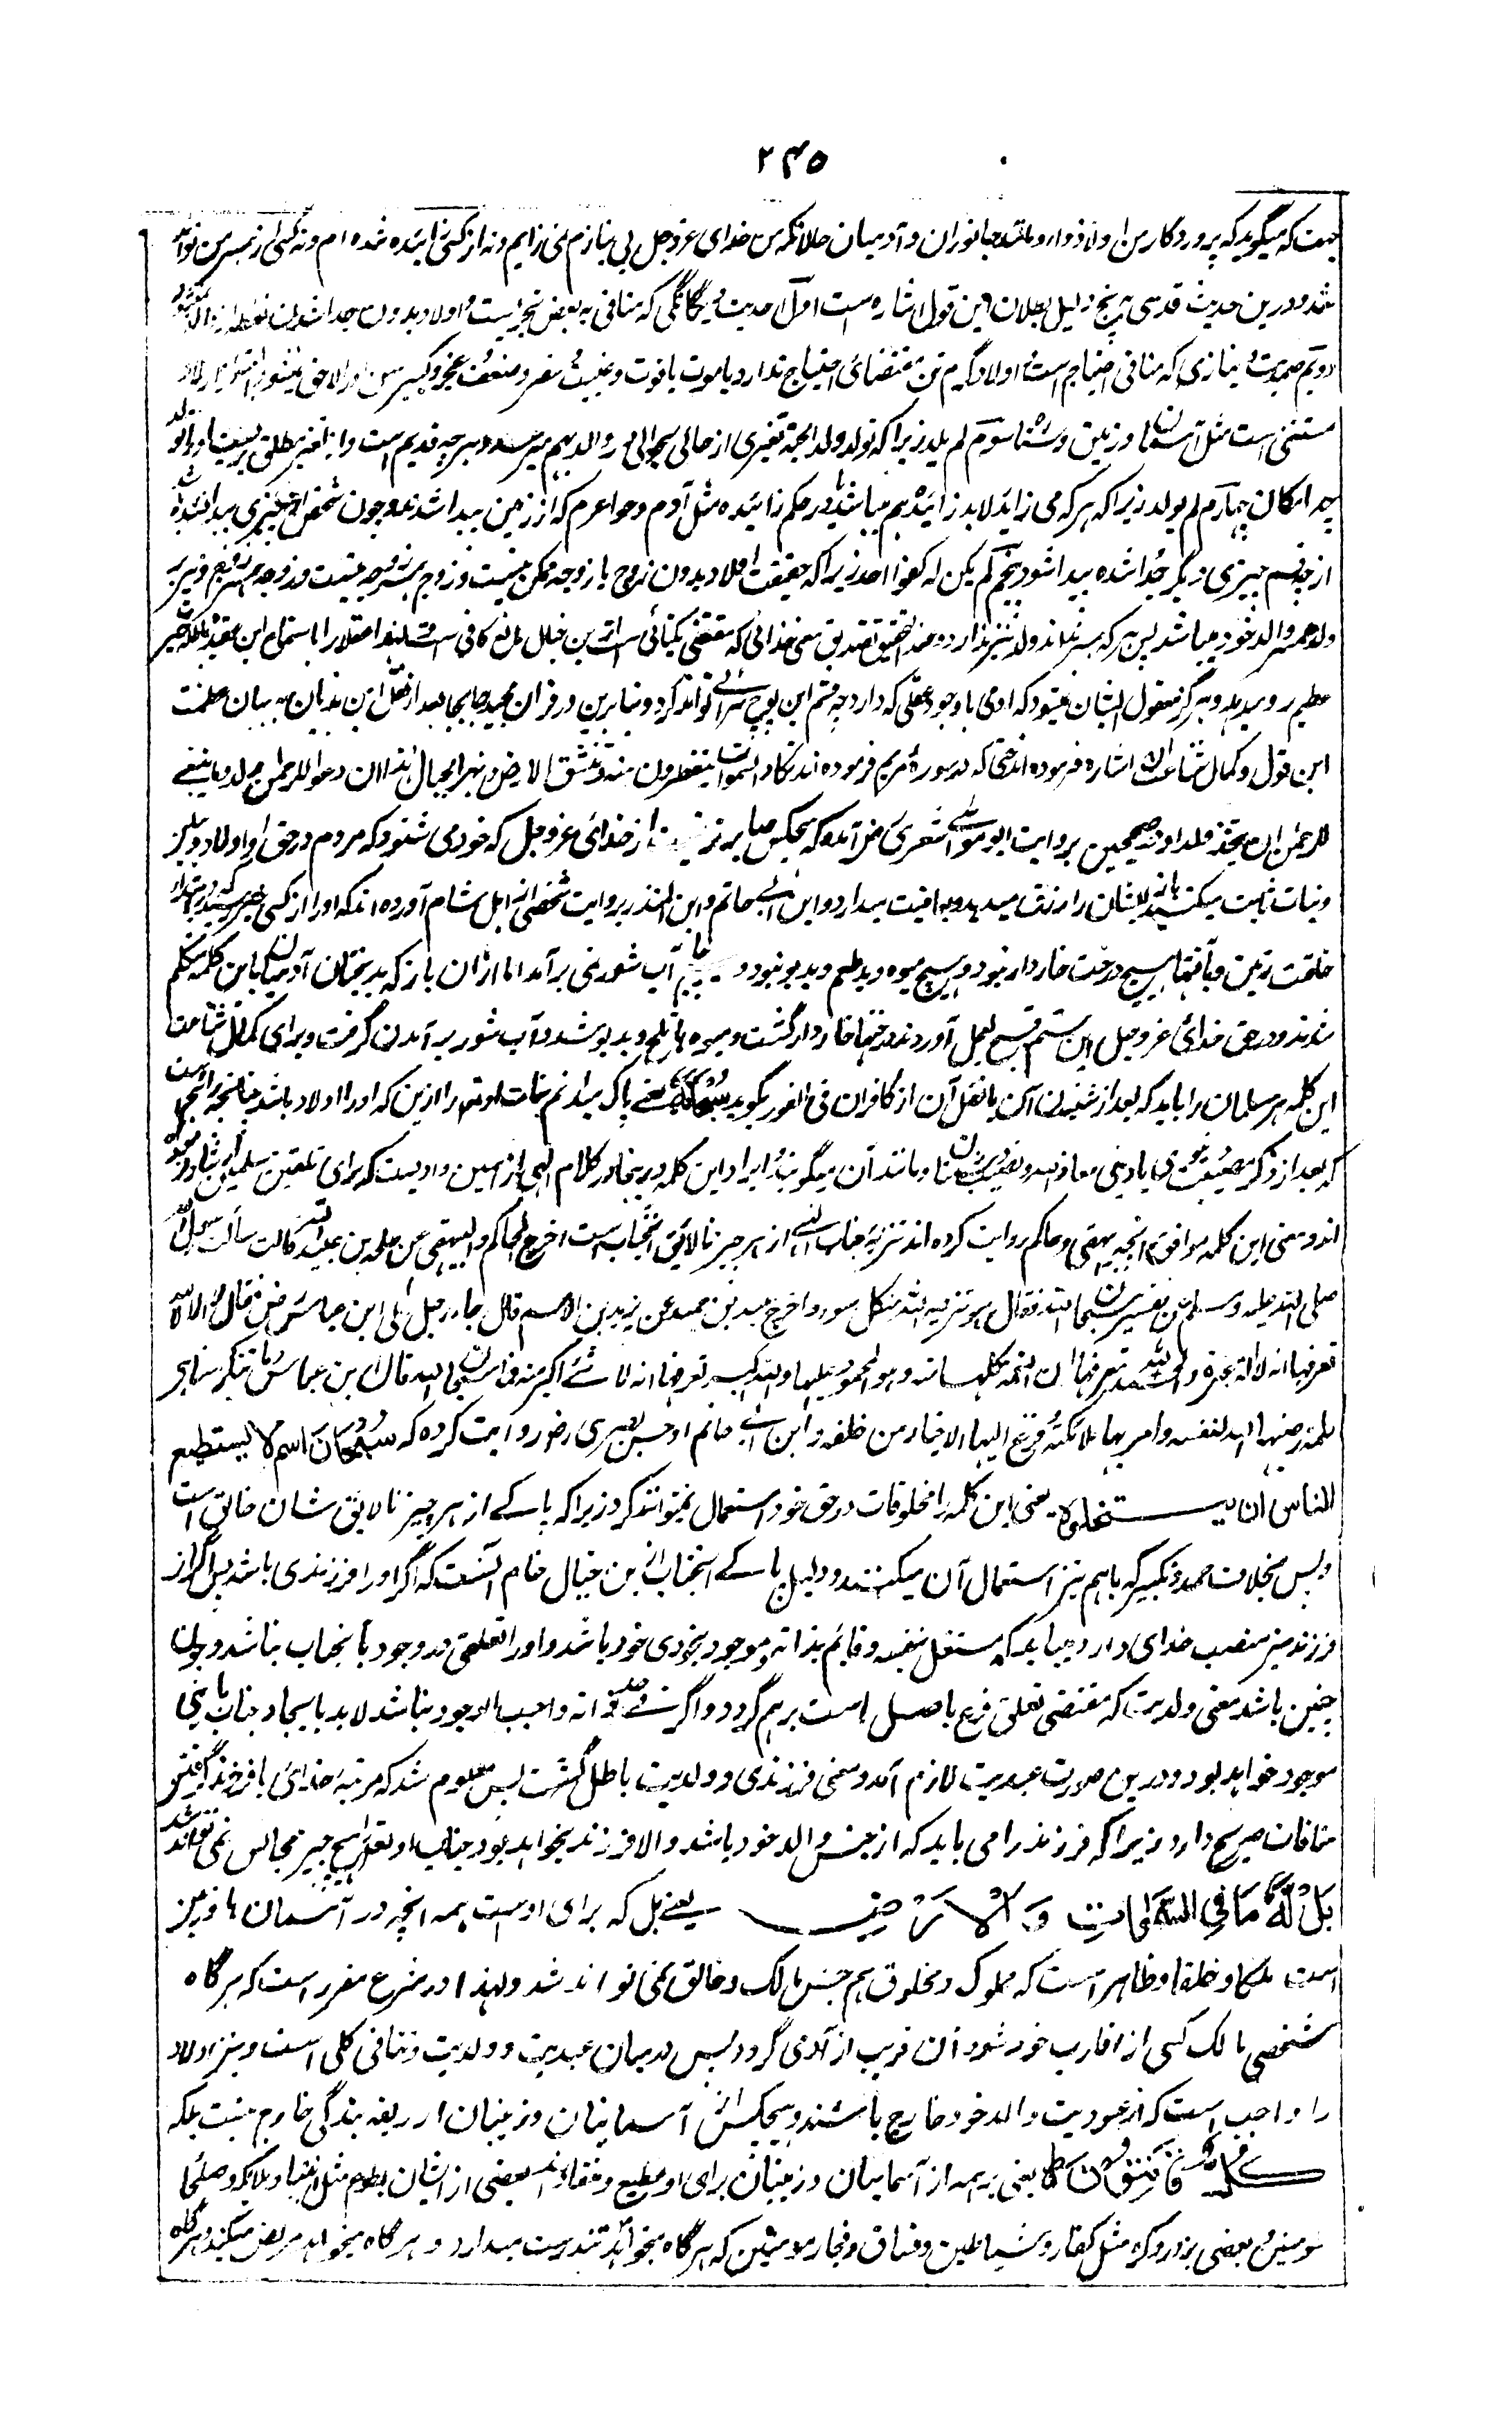 ۲۴۵
جهت که میگوید که پروردگار من اولاد دارد مانند جانوران و آدمیان حالانکه من خدای عز و جل بی نیازم نمی زایم و نه از کسی زائیده شده ام و نه کسی از همسر من تواند
شد و درین حدیث قدسی به پنج دلیل بطلان این قول اشاره است اول احدیت و یگانگی که منافی به بعض تجزیست و اولاد بدون جدا شدن نطفه از والد
دویم صمدیت و بی نیازی که منافی احتیاج است و اولاد گرفتن مقتضای احتیاج ندارد یا موت یا فوت و غیبت سفر و ضعف عجز و کبر سن او را لاحق
مستغنی است مثل آسمان و زمین و سوم لم یلد زیرا که تولد ولد البته تغیری از حالی بحالی در والد بهم میرسد و هر چه قدیم است و از تغیر مطلق بریست او را تولد
چه امکان چهارم لم یولد زیرا که هر که می زاید لابد زائیده هم میباشد یا در حکم زائیده مثل آدم و حوا که از زمین پیدا شدند و چون شخصی از چیزی پیدا نشده باشد
از چه قسم چیزی دیگر جدا شده پیدا شود پنجم لم یکن له کفوا احد زیرا که حقیقت اولاد بدون زوج یا زوجه ممکن نیست و زوج همسر زوجه هست و زوجه همسر زوج و نیز
ولد همسر والد خود میباشد پس هر که همسر ندارد ولد نیز ندارد و عند التحقیق تصدیق معنی خدائی که مقتضی یکتائی است ازین خیال مانع کافی است و لهذا عقلا را باستماع این عقیده باطله حیرت
عظیم رو میدهد و هرگز معقول ایشان نمیشود که آدمی باوجود عقلی که دارد چه قسم این پوچ سرائی تواند کرد و بنابرین در قرآن مجید جابجا بعد از نقل این هذیان به بیان عظمت
این قول و کمال شناعت آن اشاره فرموده اند حتی که در سورهٔ مریم فرموده اند تکاد السموات یتفطرن منه و تنشق الارض و تخر الجبال هدا ان دعوا للرحمن ولدا و ما ینبغی
للرحمن ان یتخذ ولدا و در صحیحین بروایت ابو موسی اشعری رض آمده که هیچکس صابر تر نیست از خدای عز و جل که خود می شنود که مردم در حق او اولاد و بنین
و بنات ثابت میکنند باز ایشان را رزق میدهد و بعافیت میدارد و ابن ابی حاتم و ابن المنذر بروایت شخصی از اهل شام آورده اند که او را از کسی خبر رسیده که در ابتداء
خلقت زمین و آنها هیچ درخت خاردار نبود و هیچ میوه بد طعم و بد بو نبود و آب شور نمی برآمد اما از آن باز که بدبختان آدمیان باین کلمه متکلم
شدند و در حق خدای عز و جل این ستم قبیح بعمل آوردند درختها خاردار گشت و میوه ها تلخ و بدبو شد و آب شور برآمدن گرفت و برای کمال شناعت
این کلمه هر مسلمان را باید که بعد از شنیدن آن یا نقل آن از کافران فی الفور بگوید سُبْحَانَهُ یعنی پاک میدانم ذات او تعالی را ازین که او را اولاد باشد چنانچه
که بعد از ذکر مصیبت معاذ الله و نصیب دشمنان و مانند آن میگویند و ایراد این کلمه درینجا در کلام الهی از همین وادیست که برای تلقین مسلمین
اند و معنی این کلمه موافق آنچه بیهقی و حاکم روایت کرده اند تنزیه جناب الهی از هر چیز نالایق آنجناب است اخرج الحاکم و البیهقی عن طلحه بن عبید الله قال سألت رسول الله
صلی الله علیه و سلم عن تفسیر سبحان الله فقال هو تنزیه الله من کل سوء و اخرج عبد بن حمید عن یزید بن الاصم قال جاء رجل الی ابن عباس رض فقال لا اله الا الله
نعرفها انه لا اله غیره و الحمد لله نعرفها ان النعم کلها منه و هو المحمود علیها و الله اکبر نعرفها انه لا شئ اکبر منه فما سبحان الله قال ابن عباس و ما تنکر منها هی
کلمة رضیها الله لنفسه و امر بها ملائکته و فزع الیها الاخیار من خلقه و ابن ابی حاتم از حسن بصری رض روایت کرده که سُبْحَانَ اسم لا یستطیع
الناس ان ینتحلوه یعنی این کلمه را مخلوقات در حق خود استعمال نمیتوانند کرد زیرا که پاکی از هر چیز نالایق شان خالق است
و بس بخلاف حمد و تکبیر که باهم نیز استعمال آن میکنند و دلیل پاکی آنجناب ازین خیال خام آنست که اگر او را فرزندی باشد پس اگر آن
فرزند نیز منصب خدای دارد میباید که مستقل بنفسه و قایم بذاته و موجود بخودی خود باشد و او را تعلقی در وجود بآنجناب نباشد و چون
چنین باشد معنی ولدیت که مقتضی تعلق فرع باصل است برهم گردد و اگر فی حد ذاته واجب الوجود نباشد لابد بایجاد جناب باری
موجود خواهد بود و درین صورت عبدیت لازم آمد و معنی فرزندی و ولدیت باطل گشت پس معلوم شد که مرتبهٔ خدائی با فرزند گرفتن
منافات صریح دارد زیرا که فرزند را می باید که از جنس والد خود باشد و الا فرزند نخواهد بود و جناب او تعالی را هیچ چیز مجانس نمی تواند شد
بَلْ لَّهُ مَا فِي السَّمَاوَاتِ وَالْأَرْضِ یعنی بلکه برای اوست همه آنچه در آسمان ها و زمین
است ملکا و خلقا و ظاهر است که مملوک و مخلوق هم جنس مالک و خالق نمی تواند شد و لهذا در شرع مقرر است که هر گاه
شخصی مالک کسی از اقارب خود شود آن قریب آزاد می گردد پس درمیان عبدیت و ولدیت تنافی کلی است و نیز اولاد
را واجب است که از عبودیت والد خود خارج باشند و هیچکس از آسمانیان و زمینیان از ربقه بندگی خارج نیست بلکه
كُلٌّ لَّهُ قَانِتُونَ یعنی همه از آسمانیان و زمینیان برای او مطیع و منقاد اند بعضی از ایشان بطوع مثل انبیا و ملائکه و صلحا
مومنین و بعضی بزور و کره مثل کفار و شیاطین و فساق و فجار مومنین که هر گاه میخواهد تندرست میدارد و هر گاه میخواهد مریض میکند و هر گاه